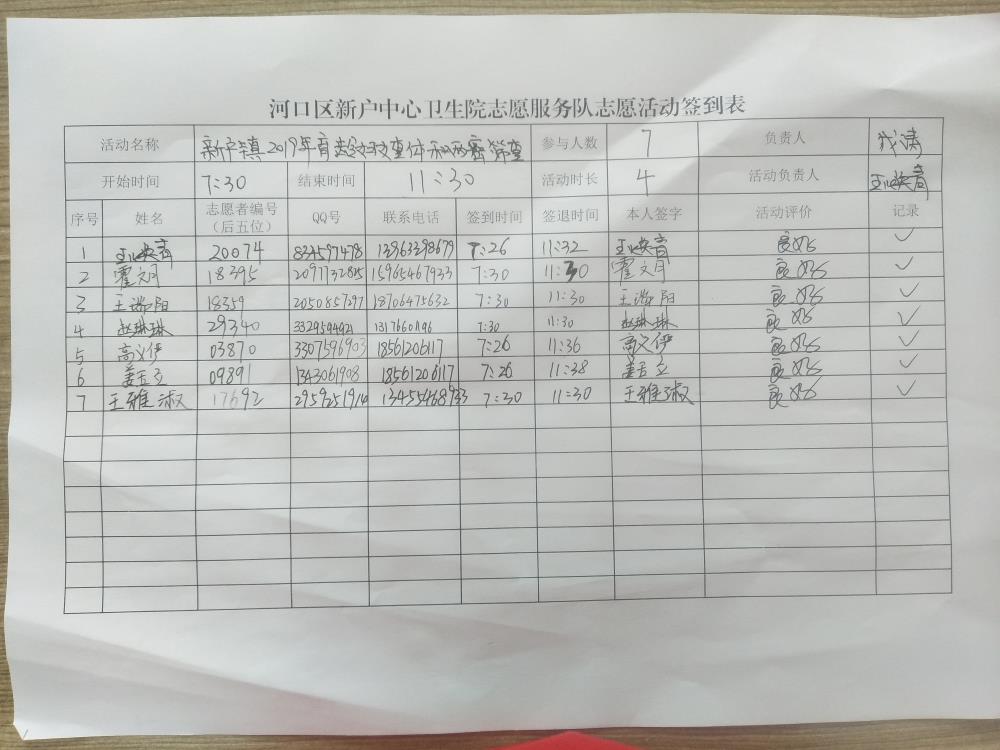 河口区新户中心卫生院志愿服务队志愿活动签到表
活动名称 新户镇2019年育龄妇女查体 参与人数 7 负责人
开始时间 7:30 结束时间 11:30 活动时长 4 活动负责人
序号 姓名 志愿者编号（后五位） QQ号 联系电话 签到时间 签退时间 本人签字 活动评价 记录
1 20074 834597478 13963398679 7:26 11:32 良好 ✓
2 霍文月 18395 15965467933 7:30 11:30 霍文月 良好 ✓
3 王瑞阳 18359 2050857297 18706475632 7:30 11:30 王瑞阳 良好 ✓
4 赵琳琳 29340 7:30 11:30 赵琳琳 良好 ✓
5 高义伊 03870 3307596903 18561206117 7:26 11:36 高义伊 良好 ✓
6 09891 1343061908 18561206117 7:26 11:38 良好 ✓
7 王雅淑 17692 2959251914 13455468933 7:30 11:30 王雅淑 良好 ✓